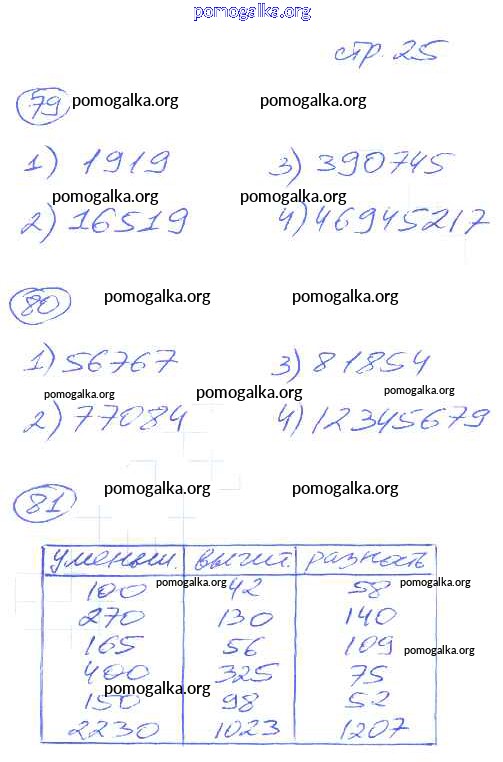 pomogalka.org
стр. 25
79 pomogalka.org pomogalka.org
1) 1919 3) 390745
pomogalka.org pomogalka.org
2) 16519 4) 46945217
80 pomogalka.org pomogalka.org
1) 56767 3) 81854
pomogalka.org pomogalka.org pomogalka.org
2) 77084 4) 12345679
81 pomogalka.org pomogalka.org
уменьш. вычит. разность
100 42 58
pomogalka.org pomogalka.org
270 130 140
165 56 109
pomogalka.org
400 325 75
pomogalka.org
150 98 52
2230 1023 1207